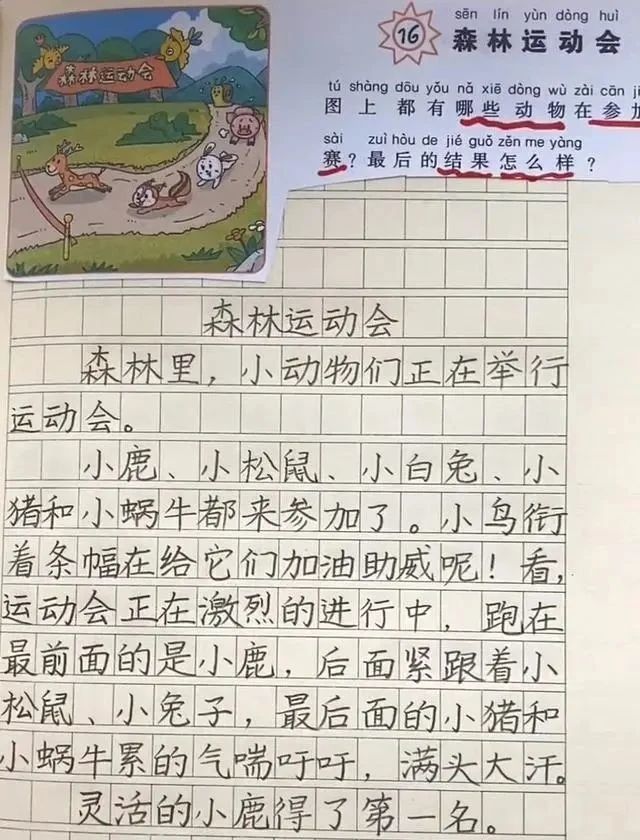 森林运动会
16
sēn lín yùn dòng huì
森林运动会
tú shàng dōu yǒu nǎ xiē dòng wù zài cān
图上都有哪些动物在参加
sài zuì hòu de jié guǒ zěn me yàng
赛？最后的结果怎么样？
森林运动会
森林里，小动物们正在举行
运动会。
小鹿、小松鼠、小白兔、小
猪和小蜗牛都来参加了。小鸟衔
着条幅在给它们加油助威呢！看，
运动会正在激烈的进行中，跑在
最前面的是小鹿，后面紧跟着小
松鼠、小兔子，最后面的小猪和
小蜗牛累的气喘吁吁，满头大汗。
灵活的小鹿得了第一名。